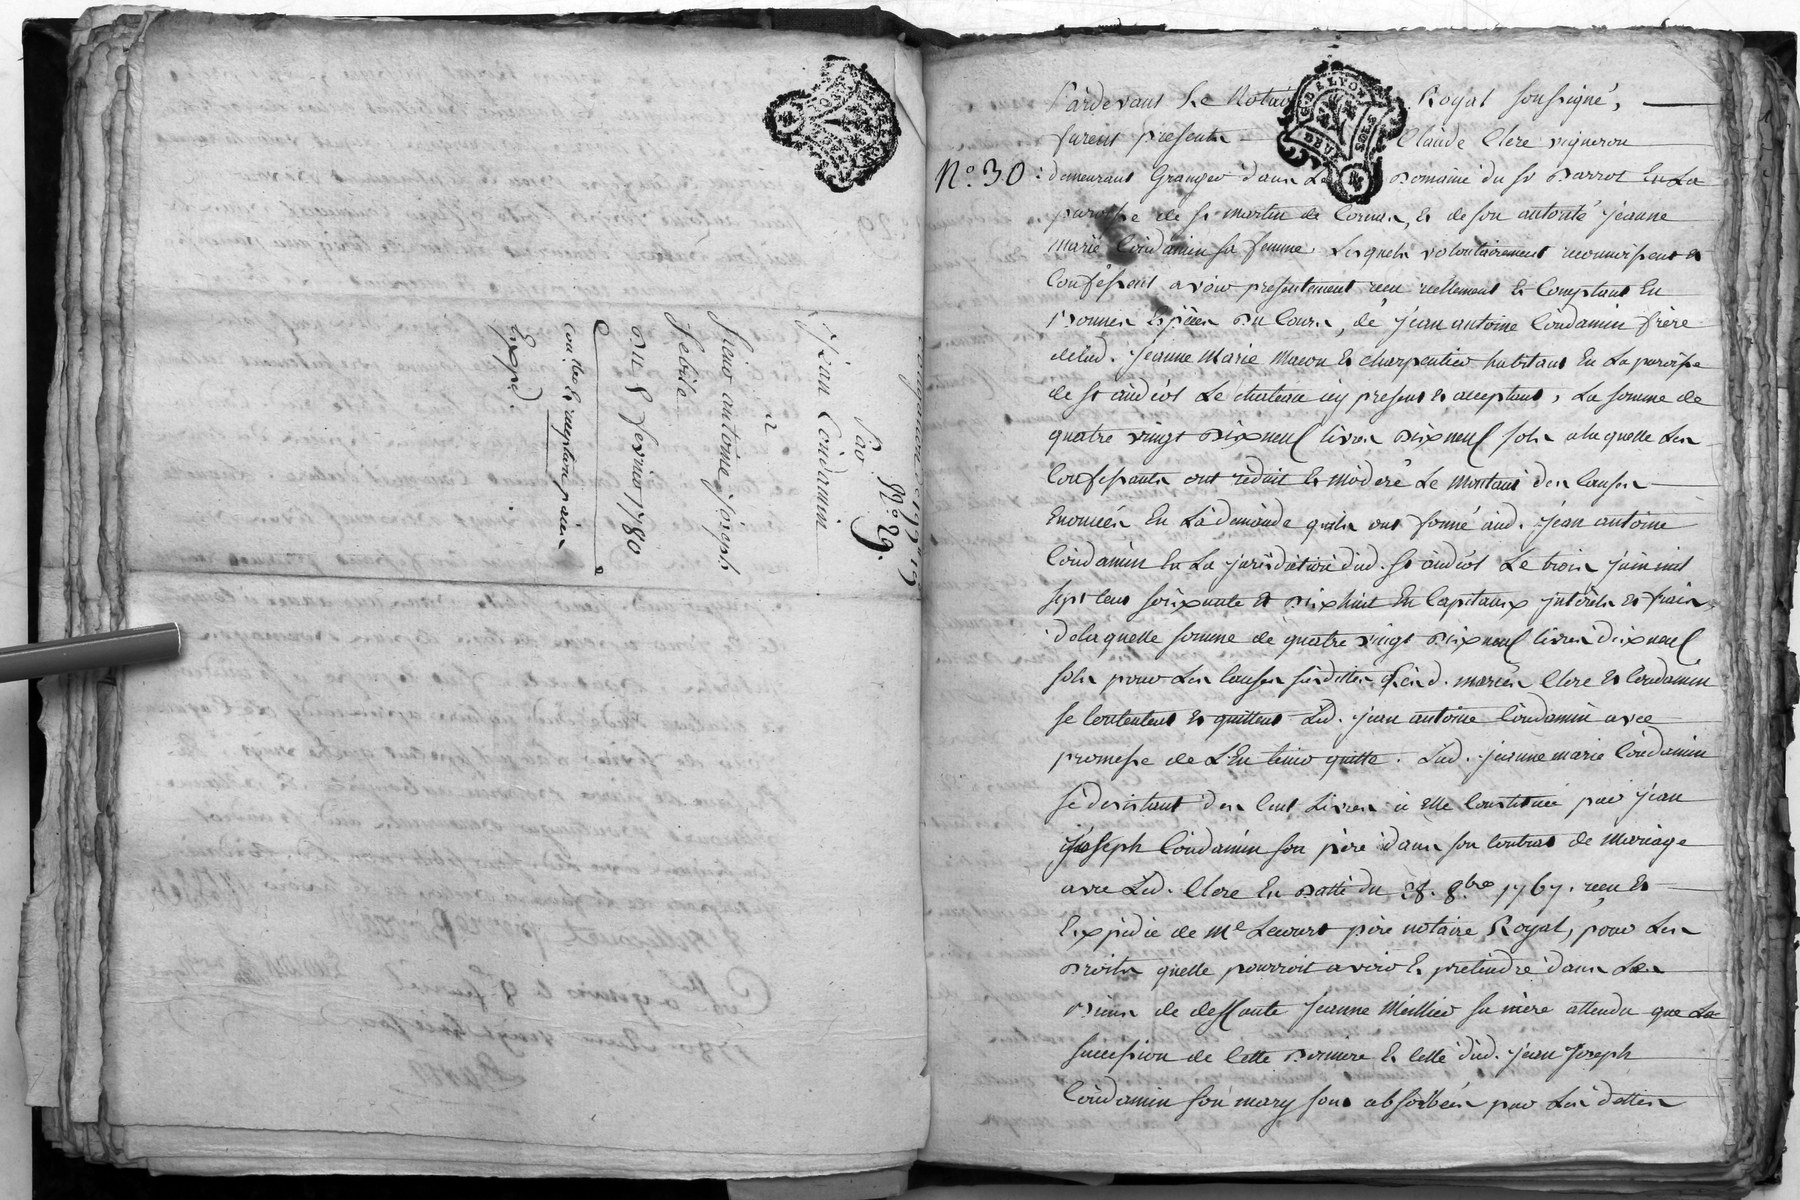 N.° 29.
par
Jean Coindamin
a
Sieur antoine joseph
Sebile
du 8 fevrier 1780
con.lé & insinué
Expé
N.° 30.
G. DE LYON
DEUX SOLS
Pardevant Le Notaire Royal soussigné,
furent presents Claude Clere vigneron
demeurant Granger dans Le Domaine du Sr Parrot En La
paroisse de st martin de Cornas, & de son autorité jeanne
marie Coindamin sa femme Lesquels volontairement reconnoissent &
Confessent avoir presentement reçu reellement & Comptant En
Bonnes Espèces Du Cours, de jean antoine Coindamin frère
delad. Jeanne Marie Macon & charpentier habitant En La paroisse
de st andéol Le chateau icy present & acceptant, La somme de
quatre vingt Dixneuf livres Dixneuf sols a laquelle Les
Confessants ont réduit & modéré Le Montant des Causes
Enoncées En La demande quils ont formé aud. jean antoine
Coindamin En La jurisdiction dud. st andéol Le trois juin mil
sept Cent soixante & Dixhuit En Capitaux jntérêts & frais,
de laquelle somme de quatre vingt Dixneuf livres dixneuf
sols pour Les Causes susdittes Lesd. mariés Clere & Coindamin
se Contentent & quittent Led. jean antoine Coindamin avec
promesse de L'En tenir quitte. Lad. jeanne marie Coindamin
se desistant des Cent Livres à elle Constituée par jean
joseph Coindamin son père dans son Contrat de Mariage
avec Led. Clere En Datte du 28. 8bre 1767. reçu &
Expédié de Me Lecourt père notaire Royal, pour Les
Droits quelle pourroit avoir & prétendre dans Les
Biens de deffunte Jeanne Meillier sa mère attendu que La
succession de Cette Derniere & Celle dud. jean Joseph
Coindamin son mary sont absorbées par Les dettes